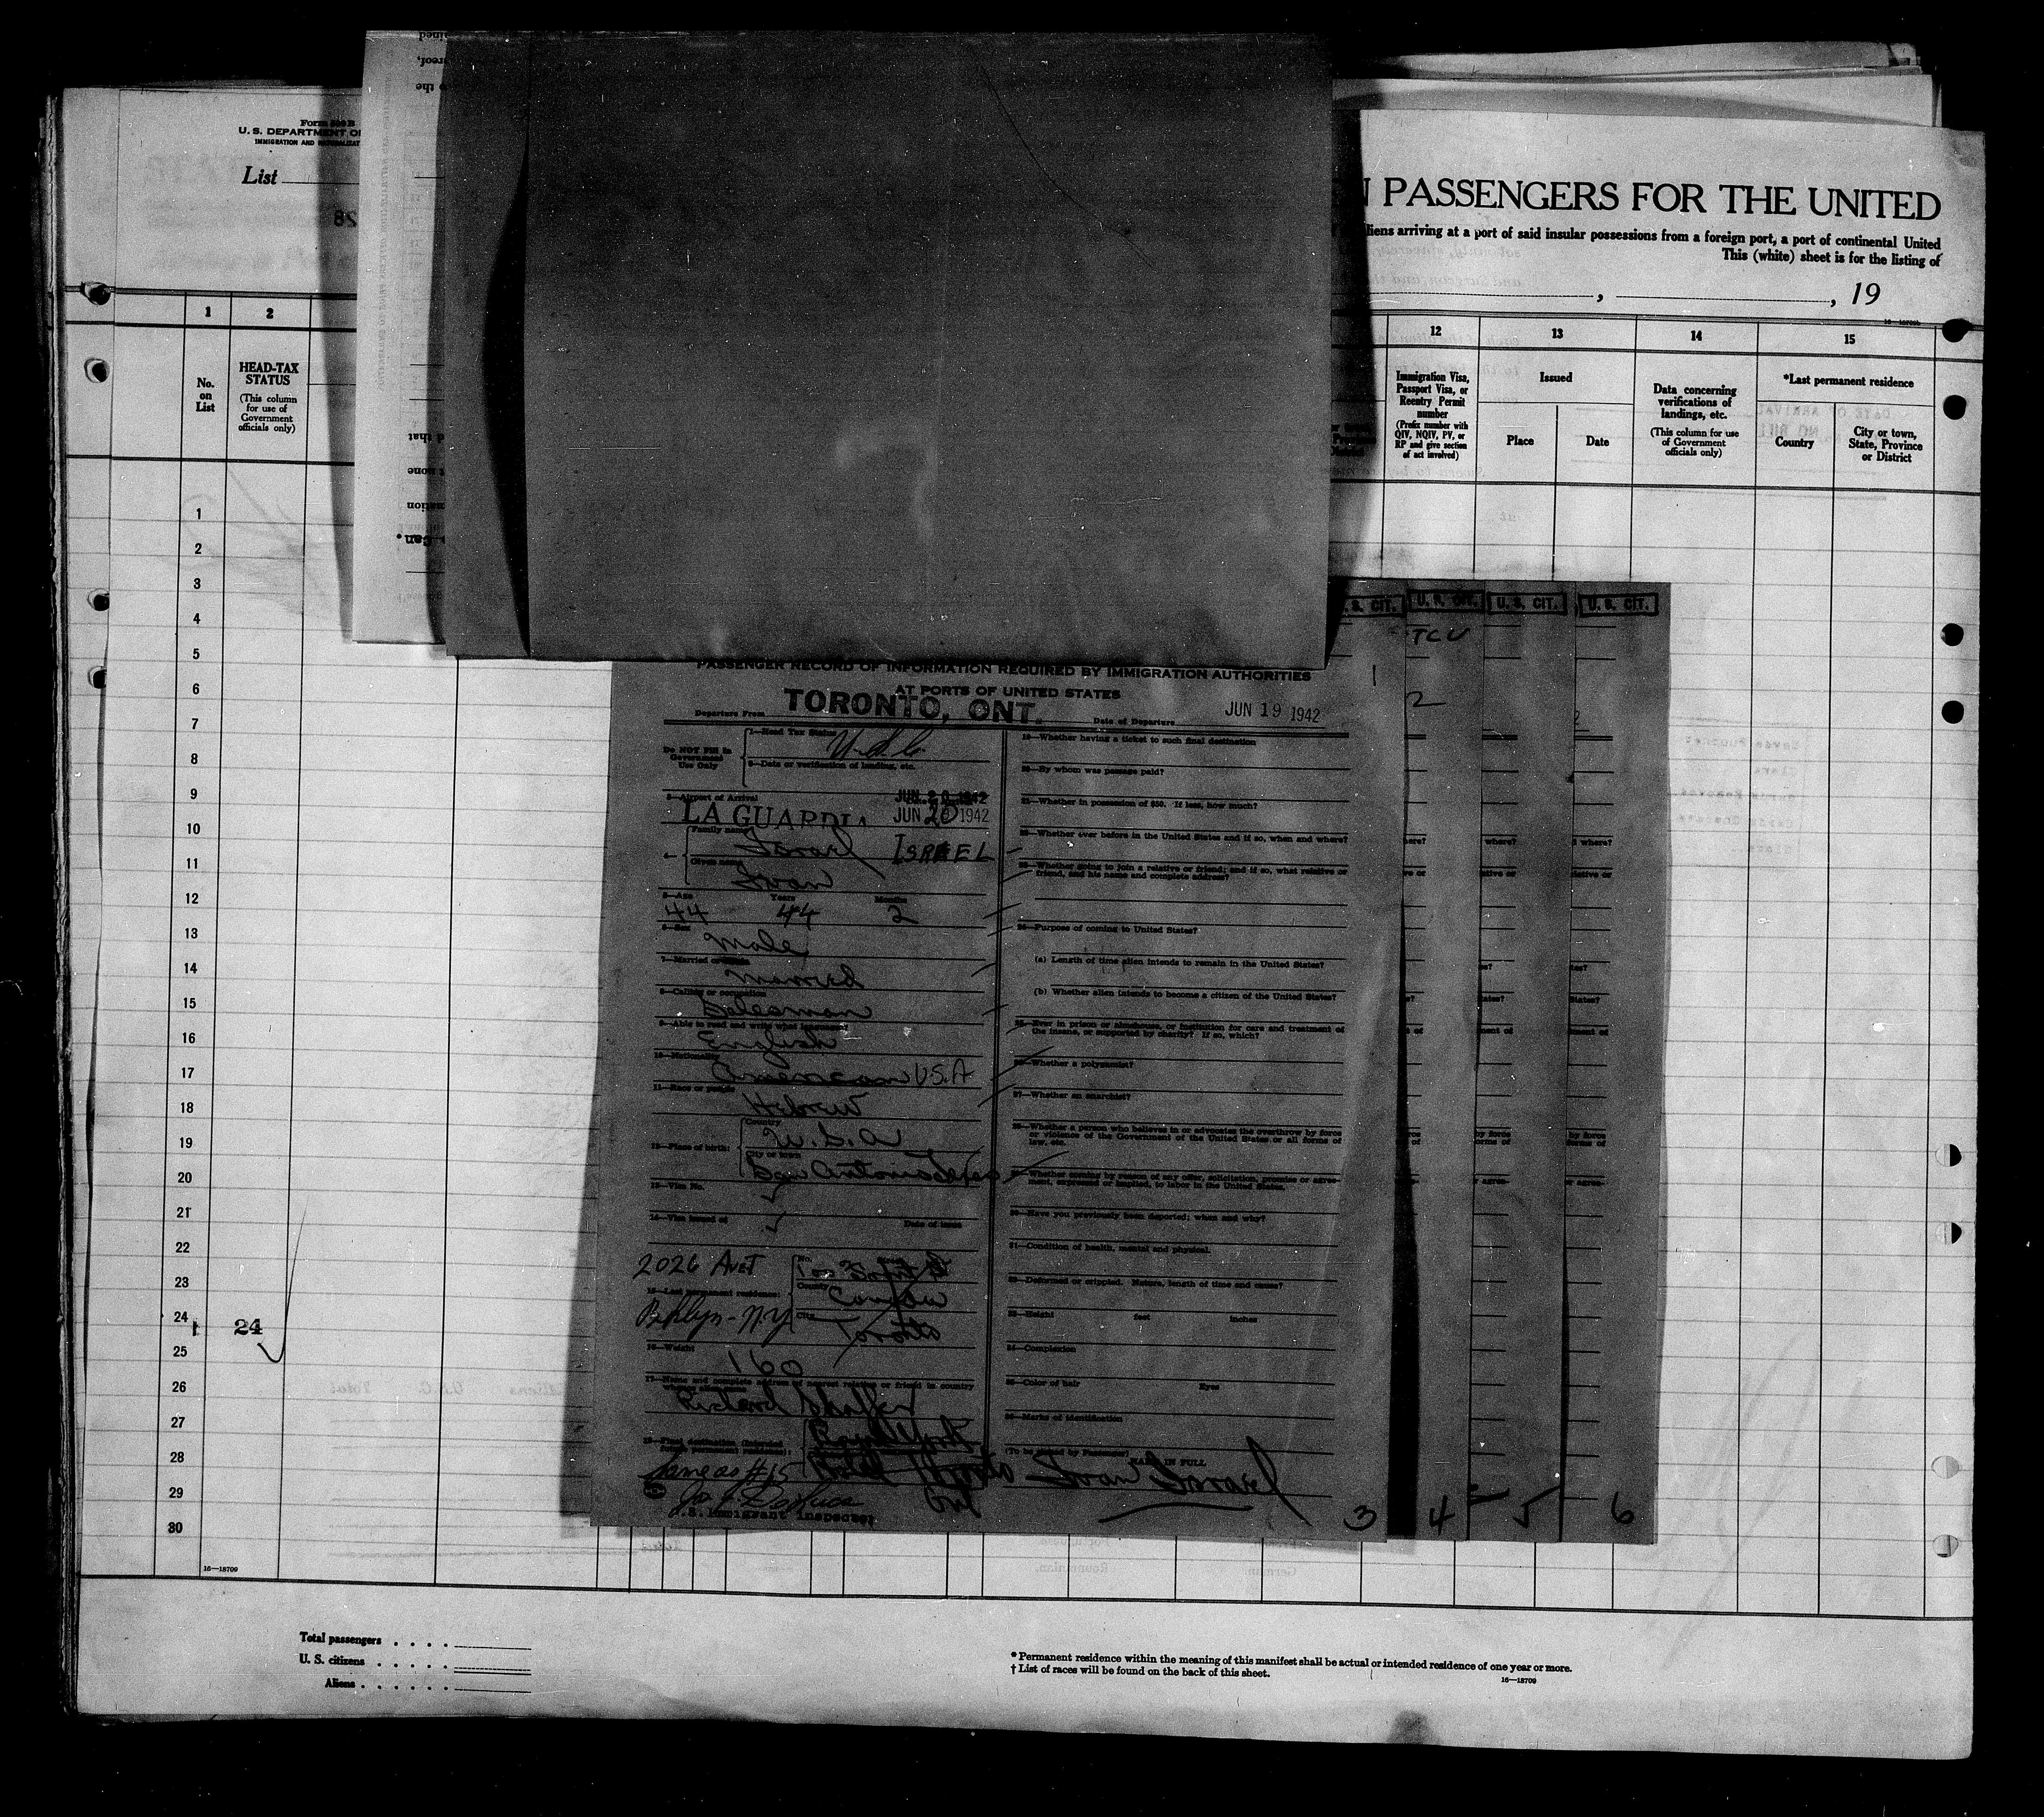 Form 500 B
U. S. DEPARTMENT OF
IMMIGRATION AND NATURALIZAT
List
28
N PASSENGERS FOR THE UNITED
liens arriving at a port of said insular possessions from a foreign port, a port of continental United
This (white) sheet is for the listing of
, , 19
1 2 12 13 14 15
No. on List
HEAD-TAX STATUS
(This column for use of Government officials only)
Immigration Visa, Passport Visa, or Reentry Permit number
(Prefix number with QIV, NQIV, PV, or RP and give section of act involved)
Issued
Place
Date
Data concerning verifications of landings, etc.
(This column for use of Government officials only)
*Last permanent residence
Country
City or town, State, Province or District
1
2
3
4
5
6
7
8
9
10
11
12
13
14
15
16
17
18
19
20
21
22
23
24
25
26
27
28
29
30
1 24
16—18709
.S. CIT. U.S. CIT. U.S. CIT. U.S. CIT.
TCU
1
2
PASSENGER RECORD OF INFORMATION REQUIRED BY IMMIGRATION AUTHORITIES
AT PORTS OF UNITED STATES
Departure From TORONTO, ONT. Date of Departure JUN 19 1942
Do NOT Fill in Government Use Only
1—Head Tax Status
2—Data or verification of landing, etc.
3—Airport of Arrival JUN 20 1942
LA GUARDIA JUN 20 1942
4— Family name Israel ISRAEL
Given name Ivan
5—Age Years Months
44 44 2
6—Sex
Male
7—Married or Single
Married
8—Calling or occupation
Salesman
9—Able to read and write what language
English
10—Nationality
American U.S.A
11—Race or people
Hebrew
12—Place of birth: Country
U.S.A
City or town
San Antonio Texas
13—Visa No.
14—Visa issued at Date of issue
2026 Ave T
No.
15—Last permanent residence: Country Canada
Bklyn - N.Y. City Toronto
16—Weight
160
17—Name and complete address of nearest relative or friend in country
Richard Shaffer
Royal York
18—Final destination
Same as #15 Hotel Toronto
Ont
U.S. Immigrant Inspector
19—Whether having a ticket to such final destination
20—By whom was passage paid?
21—Whether in possession of $50. If less, how much?
22—Whether ever before in the United States and if so, when and where?
23—Whether going to join a relative or friend; and if so, what relative or friend, and his name and complete address?
24—Purpose of coming to United States?
(a) Length of time alien intends to remain in the United States?
(b) Whether alien intends to become a citizen of the United States?
25—Ever in prison or almshouse, or institution for care and treatment of the insane, or supported by charity? If so, which?
26—Whether a polygamist?
27—Whether an anarchist?
28—Whether a person who believes in or advocates the overthrow by force or violence of the Government of the United States or all forms of law, etc.
29—Whether coming by reason of any offer, solicitation, promise or agreement, expressed or implied, to labor in the United States.
30—Have you previously been deported; when and why?
31—Condition of health, mental and physical.
32—Deformed or crippled. Nature, length of time and cause?
33—Height feet inches
34—Complexion
35—Color of hair Eyes
36—Marks of identification
(To be signed by Passenger) NAME IN FULL
Ivan Israel
3 4 5 6
Total passengers . . . .
U. S. citizens . . . . .
Aliens . . . . . .
* Permanent residence within the meaning of this manifest shall be actual or intended residence of one year or more.
† List of races will be found on the back of this sheet.
16—18709